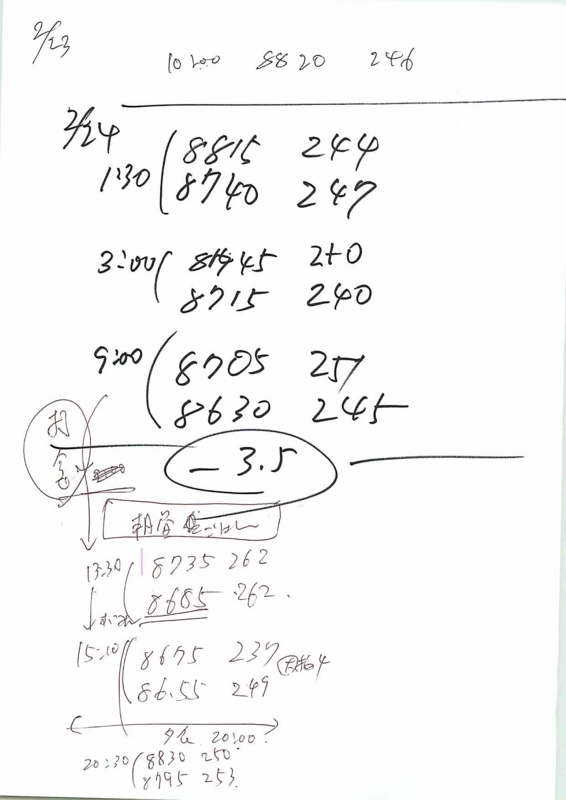 2/23
10:00 8820 246
2/24
1:30 8815 244
8740 247
3:00 45 240
8715 240
9:00 8705 257
8630 245
- 3.5
13:30 8735 262
8685 262.
15:10 8675 239
86.55 249
夕食 20:00
20:30 8830 250
8795 253